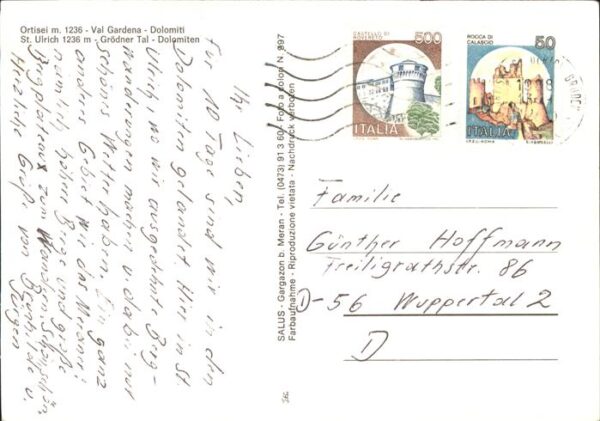 Ortisei m. 1236 - Val Gardena - Dolomiti
St. Ulrich 1236 m - Grödner Tal - Dolomiten
Ihr Lieben,
für 10 Tage sind wir in den
Dolomiten gelandet. Hier in St
Ulrich wo wir ausgedehnte Berg-
wanderungen machen u. dabei nur
schönes Wetter haben. Ein ganz
anderes Gebiet wie das Meraner:
hohe Berge und große
zum Wandern.
Herzliche Grüße von u.
Jürgen
SALUS - Gargazon b. Meran - Tel. (0473) 91 3 60 - Foto a colori N. 997
Farbaufnahme - Riproduzione vietata - Nachdruck verboten
CASTELLO DI
ROVERETO
500
ITALIA
ROCCA DI
CALASCIO
50
ITALIA
Familie
Günther Hoffmann
Freiligrathstr. 86
D-56 Wuppertal 2
D